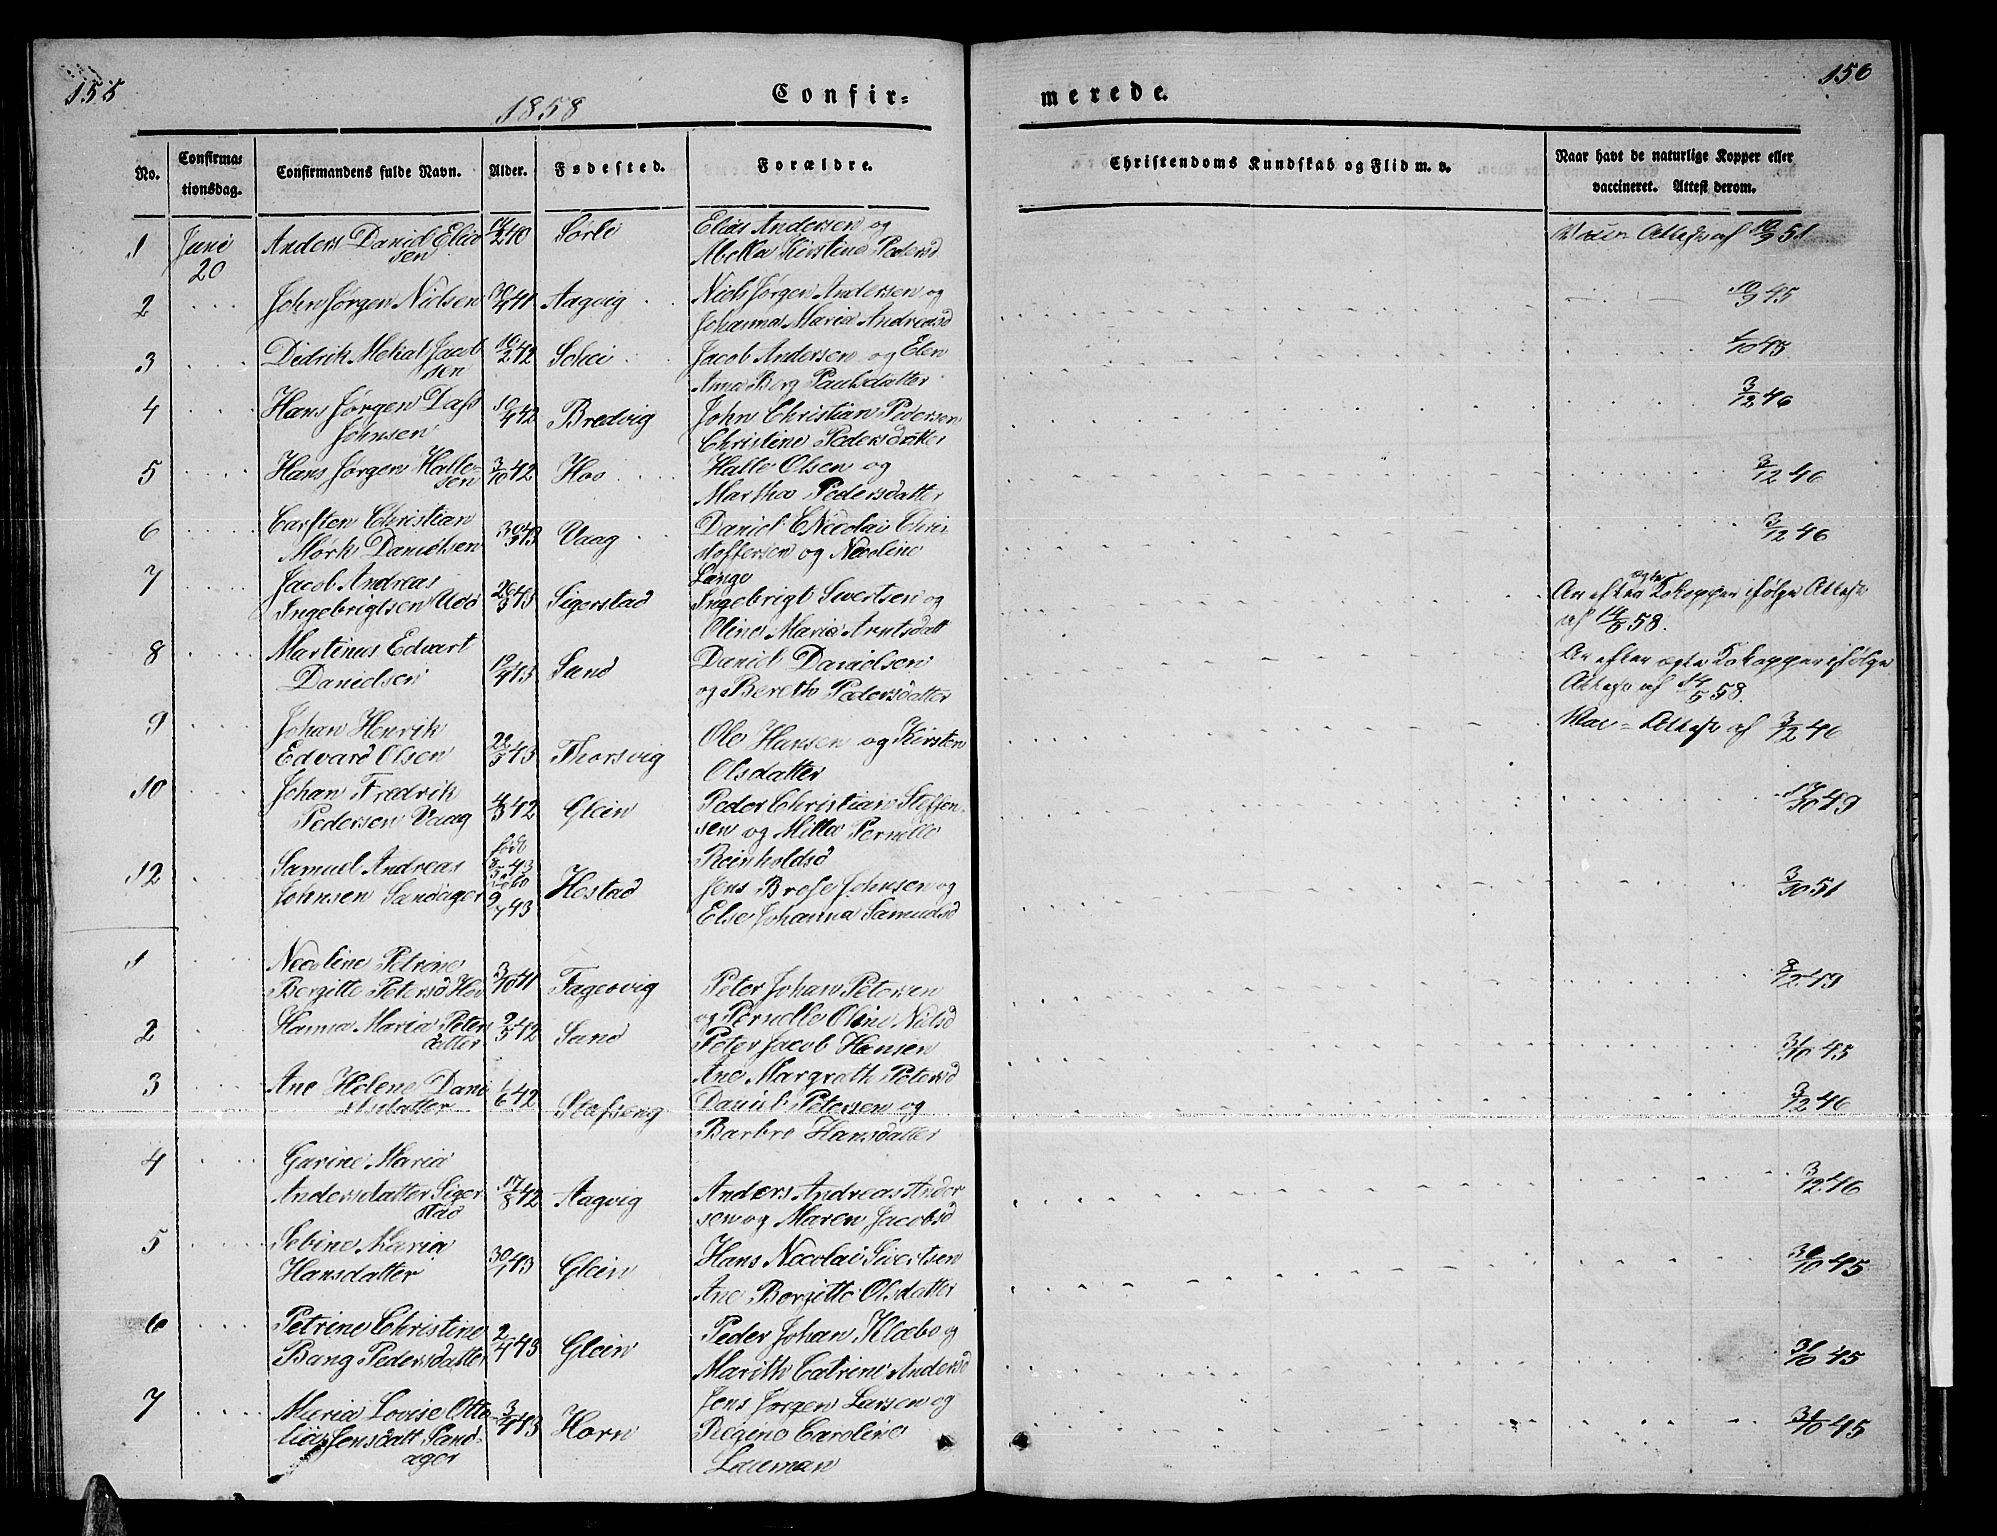 155
1858
Confir-
merede.
156
No.
Confirma-
tionsdag.
Confirmandens fulde Navn.
Alder.
Fødested.
Forældre.
Christendoms Kundskab og Flid m. v.
Naar havt de naturlige Kopper eller
vaccineret. Attest derom.
1 Juni 20 Anders Daniel Elia
sen
Sørli
Elias Andersen og
Kirstine Pedersd
Attest af 10/9 51
2 John Jørgen Nielsen
Aagvig
Niels Jørgen Andersen og
Johanna Maria Andreasd
10/9 45
3 Didrik Mekal Jacob
sen
10/2 42
Jacob Andersen og Elen
Anna Berg Paulsdatter
4 Hans Jørgen Dass
Johnsen
Bredvig
John Christian Pedersen
Christine Pedersdatter
3/12 46
5 Hans Jørgen Halle-
sen
3/10 42
Hos
Halle Olsen og
Martha Pedersdatter
3/12 46
6 Carsten Christian
Mørk Danielsen
Vaag
Daniel Nicolai Chri
stoffersen og Nicoline
Lange
3/12 46
7 Jacob Andreas
Ingebrigtsen
Sigerstad
Ingebrigt Sivertsen og
Oline Maria Arntsdatt
ægte
Ar efter Kokopper ifølge Attest
af 14/5 58.
8 Martinus Edvart
Danielsen
Sand
Daniel Danielsen
og Bereth Pedersdatter
Ar efter ægte Kokopper ifølge
Attest af 14/5 58.
9 Johan Henrik
Edvard Olsen
22/5 43
Thorsvig
Ole Hansen og Kirsten
Olsdatter
Vac = Attest af 3/12 46
10 Johan Fredrik
Pedersen Vaag
4/3 42
Glein
Peder Christian Steffen-
sen og Mille Pernille
Reinholdsd
17/10 49
12 Samuel Andreas
Johnsen Sandager
født
9/7 43
Hestad
Jens Johnsen og
Else Johanna Samuelsd
3/10 51
1 Nicoline Petrine
Bergitte Petersd
3/10 41
Fagervig
Peter Johan Petersen
og Pernille Oline Nielsd
8/12 49
2 Hanna Maria Peter
datter
2/5 42
Sand
Peter Jacob Hansen
Ane Margreth Petersd
31/10 45
3 Ane Helene Dani
elsdatter
1/6 42
Stafseng
Daniel Petersen og
Barbro Hansdatter
3/12 46
4 Gurine Maria
Andersdatter Siger
stad
17/8 42
Aagvig
Anders Andreas Ander
sen og Maren Jacobsd
3/12 46
5 Sebine Maria
Hansdatter
30/1 43
Glein
Hans Nicolai Sivertsen
Ane Bergitte Olsdatter
31/10 45
6 Petrine Christine
Bang Pedersdatter
2/4 43
Glein
Peder Johan Klæbo og
Marith Catrine Andersd
31/10 45
7 Maria Lovise Otte
lia Jensdatt Sand-
ager
3/4 43
Horn
Jens Jørgen Larsen og
Regine Caroline
Lauman
31/10 45